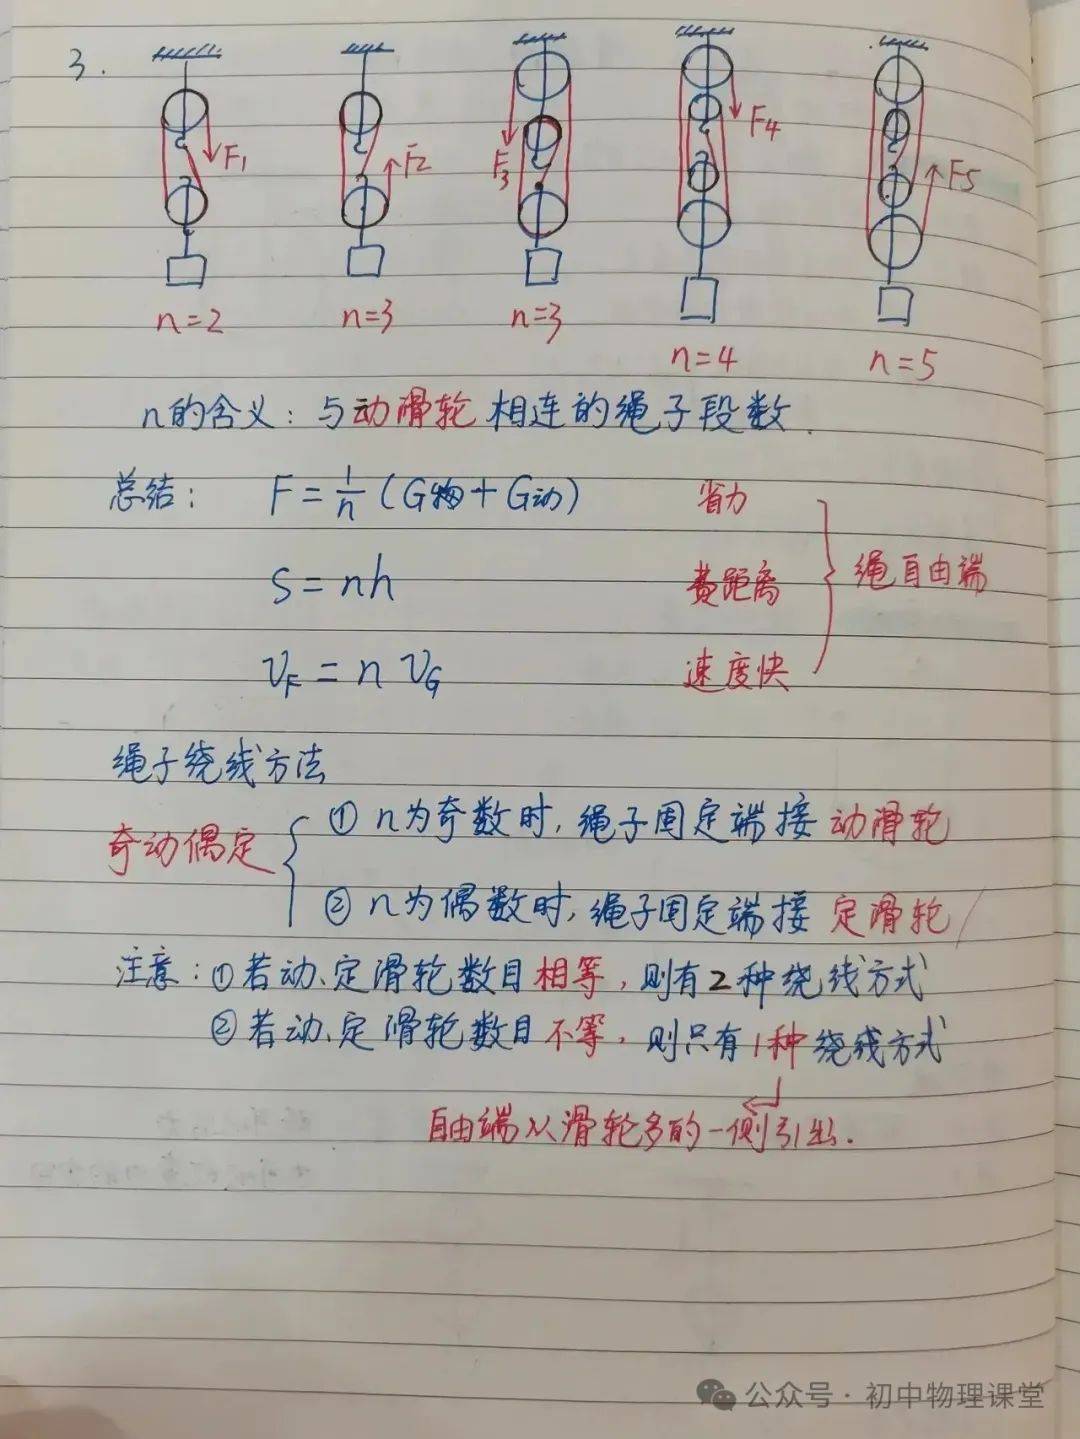 3.
F1
F2
F3
F4
F5
n=2
n=3
n=3
n=4
n=5
n的含义：与动滑轮相连的绳子段数.
总结： F=1/n(G物+G动) 省力
S=nh 费距离
绳自由端
vF=n vG 速度快
绳子绕线方法
奇动偶定
① n为奇数时,绳子固定端接 动滑轮
② n为偶数时,绳子固定端接 定滑轮
注意：①若动、定滑轮数目相等，则有2种绕线方式
②若动、定滑轮数目不等，则只有1种绕线方式
自由端从滑轮多的一侧引出.
公众号·初中物理课堂